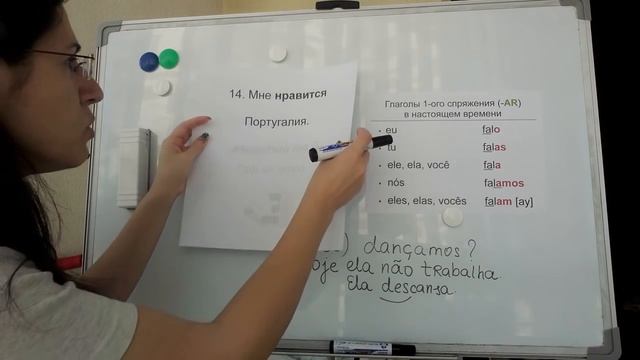 14. Мне нравится
Португалия.
Глаголы 1-ого спряжения (-AR)
в настоящем времени
• eu falo
• tu falas
• ele, ela, você fala
• nós falamos
• eles, elas, vocês falam [ау]
dançamos?
ela não trabalha.
Ela descansa.